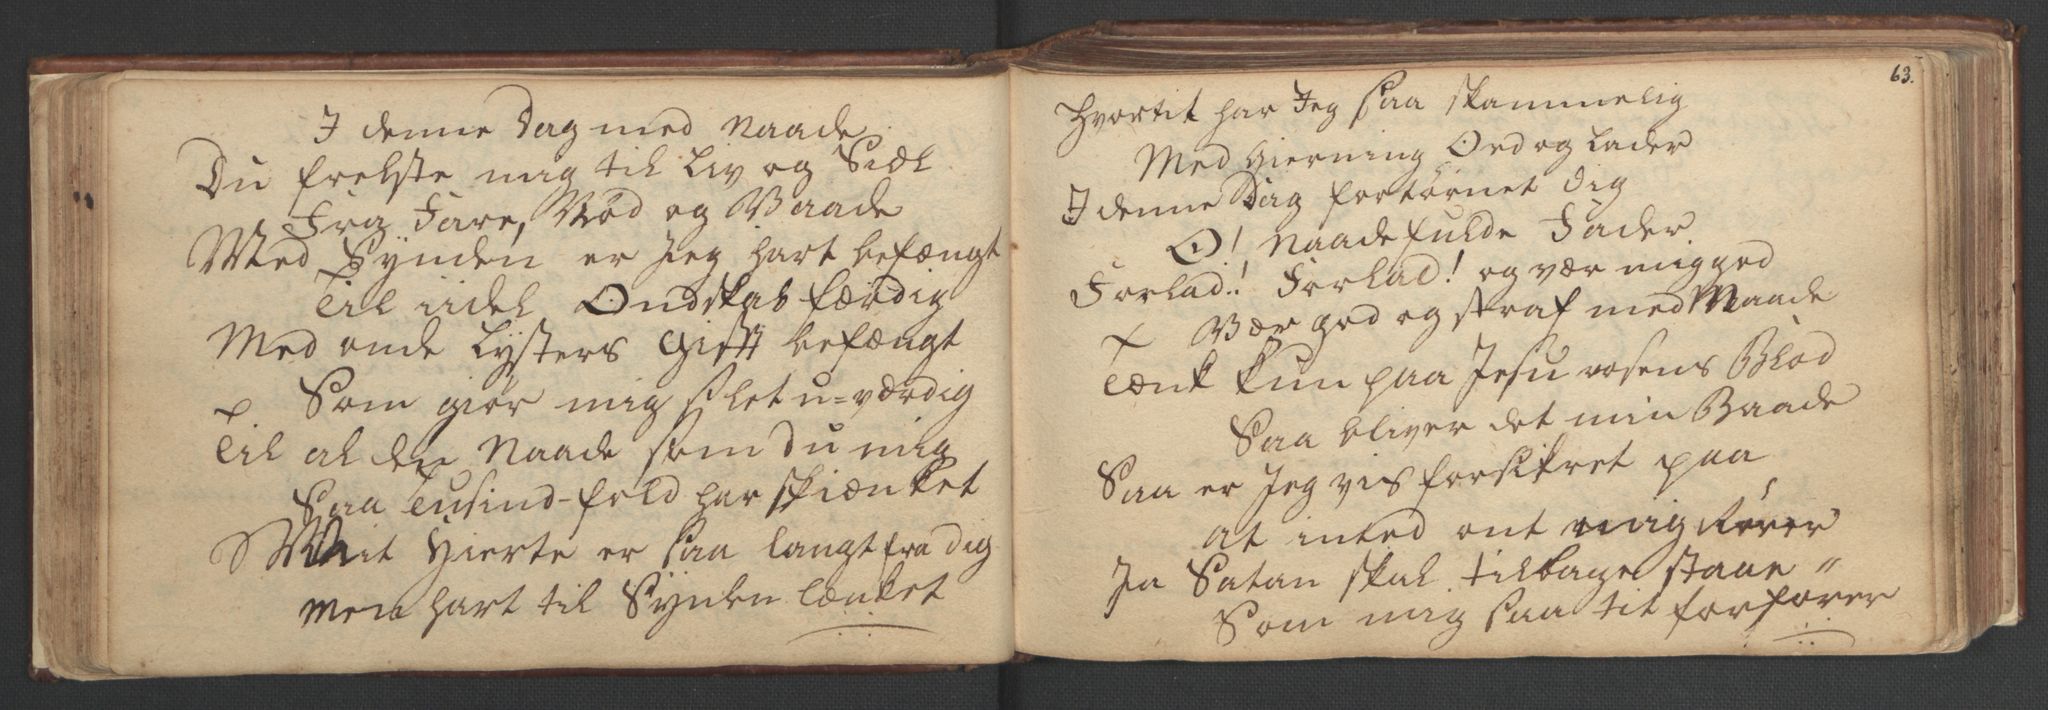 I denne Dag med Naade
Du frelste mig til Liv og Siæl
Fra Fare, Nød og Vaade
Med Synden er Jeg hart befængt
Til iidel Ondskab færdig
Med onde Lysters Gift befængt
Som giør mig slet u=værdig
Til al den Naade som Du mig
Saa Tusind-fold har skiænket
Mit Hierte er saa langt fra dig
Men hart til Synden lænket
63.
Hvortit har Jeg saa skammelig
Med Gierning Ord og Lader
I denne Dag fortørnet dig
O! Naadefulde Fader
Forlad! Forlad! og vær mig god
Vær god og straf med Maade
Tænk kun paa Jesu rosens Blod
Saa bliver det min Baade
Saa er Jeg vis forsikret paa
at inted ont mig Rører
Ja Satan skal tilbage staae
Som mig saa tit forfører